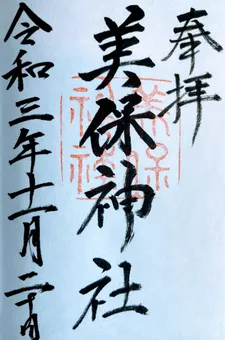 奉拝
美保神社
美保神社
令和三年十一月二十日